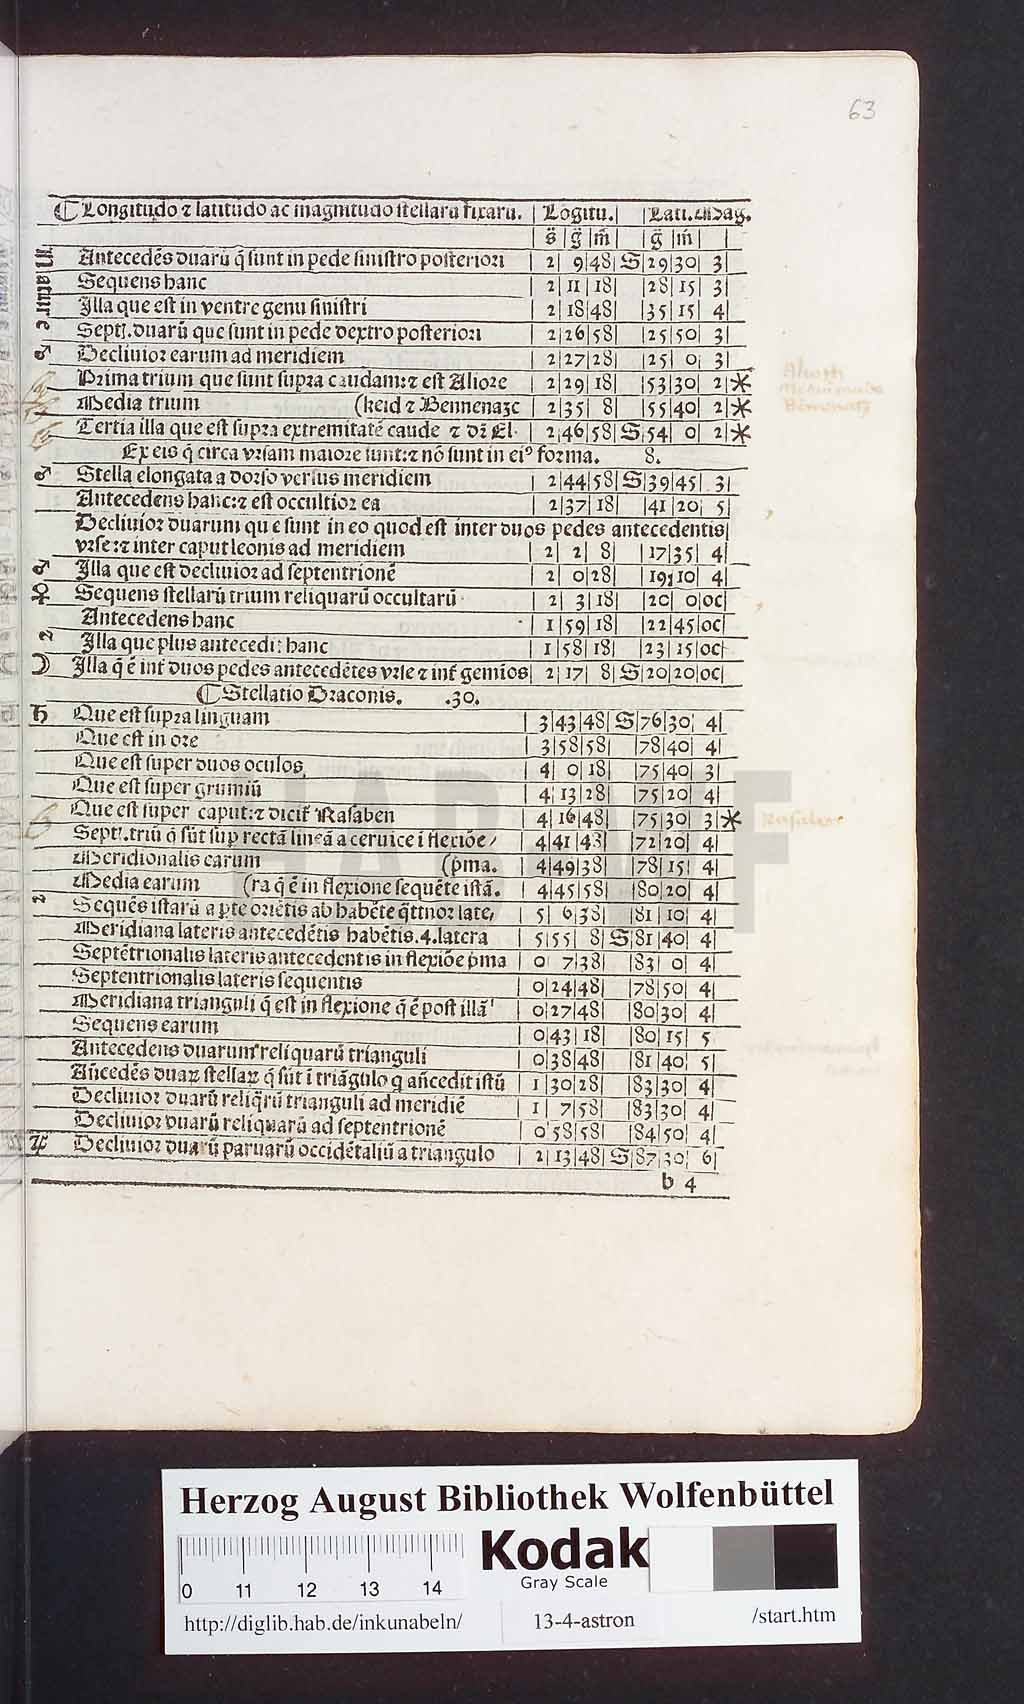 63
☾ Longitudo ⁊ latitudo ac magnitudo stellarū fixarū. | Lōgitu. | Lati. Mag.
s̄ | ḡ | m̄ | ḡ | m̄
Nature
Antecedēs duarū q̄ sunt in pede sinistro posteriori | 2 | 9 | 48 | S | 29 | 30 | 3
Sequens hanc | 2 | 11 | 18 | 28 | 15 | 3
Illa que est in ventre genu sinistri | 2 | 18 | 48 | 35 | 15 | 4
Septē. duarū que sunt in pede dextro posteriori | 2 | 26 | 58 | 25 | 50 | 3
♂ Decliuior earum ad meridiem | 2 | 27 | 28 | 25 | 0 | 3
Prima trium que sunt supra caudam: ⁊ est Aliore | 2 | 29 | 18 | 53 | 30 | 2 | *
Media trium (keid ⁊ Bennenazc | 2 | 35 | 8 | 55 | 40 | 2 | *
Tertia illa que est supra extremitatē caude ⁊ dr̄ El- | 2 | 46 | 58 | S | 54 | 0 | 2 | *
Ex eis q̄ circa vrsam maiore sunt: ⁊ nō sunt in eiꝰ forma. 8.
♂ Stella elongata a dorso versus meridiem | 2 | 44 | 58 | S | 39 | 45 | 3
Antecedens hanc: ⁊ est occultior ea | 2 | 37 | 18 | 41 | 20 | 5
Decliuior duarum que sunt in eo quod est inter duos pedes antecedentis
vrse: ⁊ inter caput leonis ad meridiem | 2 | 2 | 8 | 17 | 35 | 4
♂ Illa que est decliuior ad septentrionē | 2 | 0 | 28 | 19 | 10 | 4
☿ Sequens stellarū trium reliquarū occultarū | 2 | 3 | 18 | 20 | 0 | oc
Antecedens hanc | 1 | 59 | 18 | 22 | 45 | oc
2 Illa que plus antecedit hanc | 1 | 58 | 18 | 23 | 15 | oc
☽ Illa q̄ ē int̄ duos pedes antecedētes vrse ⁊ int̄ gemīos | 2 | 17 | 8 | S | 20 | 20 | oc
☾ Stellatio Draconis. .30.
♄ Que est supra linguam | 3 | 43 | 48 | S | 76 | 30 | 4
Que est in ore | 3 | 58 | 58 | 78 | 40 | 4
Que est super duos oculos | 4 | 0 | 18 | 75 | 40 | 3
Que est super grumiū | 4 | 13 | 28 | 75 | 20 | 4
Que est super caput: ⁊ dicit̄ Rasaben | 4 | 16 | 48 | 75 | 30 | 3 | *
Septē. triū q̄ sūt sup rectā lineā a ceruice ī flexiōe/ | 4 | 41 | 43 | 72 | 20 | 4
Meridionalis earum (p̄ma. | 4 | 49 | 38 | 78 | 15 | 4
Media earum (ra q̄ ē in flexione sequēte istā. | 4 | 45 | 58 | 80 | 20 | 4
2 Sequēs istarū a p̄te oriētis ab habēte q̄ttuor late/ | 5 | 6 | 38 | 81 | 10 | 4
Meridiana lateris antecedētis habētis .4. latera | 5 | 55 | 8 | S | 81 | 40 | 4
Septētrionalis lateris antecedentis in flexiōe p̄ma | 0 | 7 | 38 | 83 | 0 | 4
Septentrionalis lateris sequentis | 0 | 24 | 48 | 78 | 50 | 4
Meridiana trianguli q̄ est in flexione q̄ ē post illā | 0 | 27 | 48 | 80 | 30 | 4
Sequens earum | 0 | 43 | 18 | 80 | 15 | 5
Antecedens duarum reliquarū trianguli | 0 | 38 | 48 | 81 | 40 | 5
Añcedēs duaꝝ stellaꝝ q̄ sūt ī triāgulo q̄ añcedit istū | 1 | 30 | 28 | 83 | 30 | 4
Decliuior duarū reliq̄rū trianguli ad meridiē | 1 | 7 | 58 | 83 | 30 | 4
Decliuior duarū reliquarū ad septentrionē | 0 | 58 | 58 | 84 | 50 | 4
♃ Decliuior duarū paruarū occidētaliū a triangulo | 2 | 13 | 48 | S | 87 | 30 | 6
b 4
Rasaben
HAB WF
Herzog August Bibliothek Wolfenbüttel
0 11 12 13 14
Kodak
Gray Scale
http://diglib.hab.de/inkunabeln/
13-4-astron
/start.htm